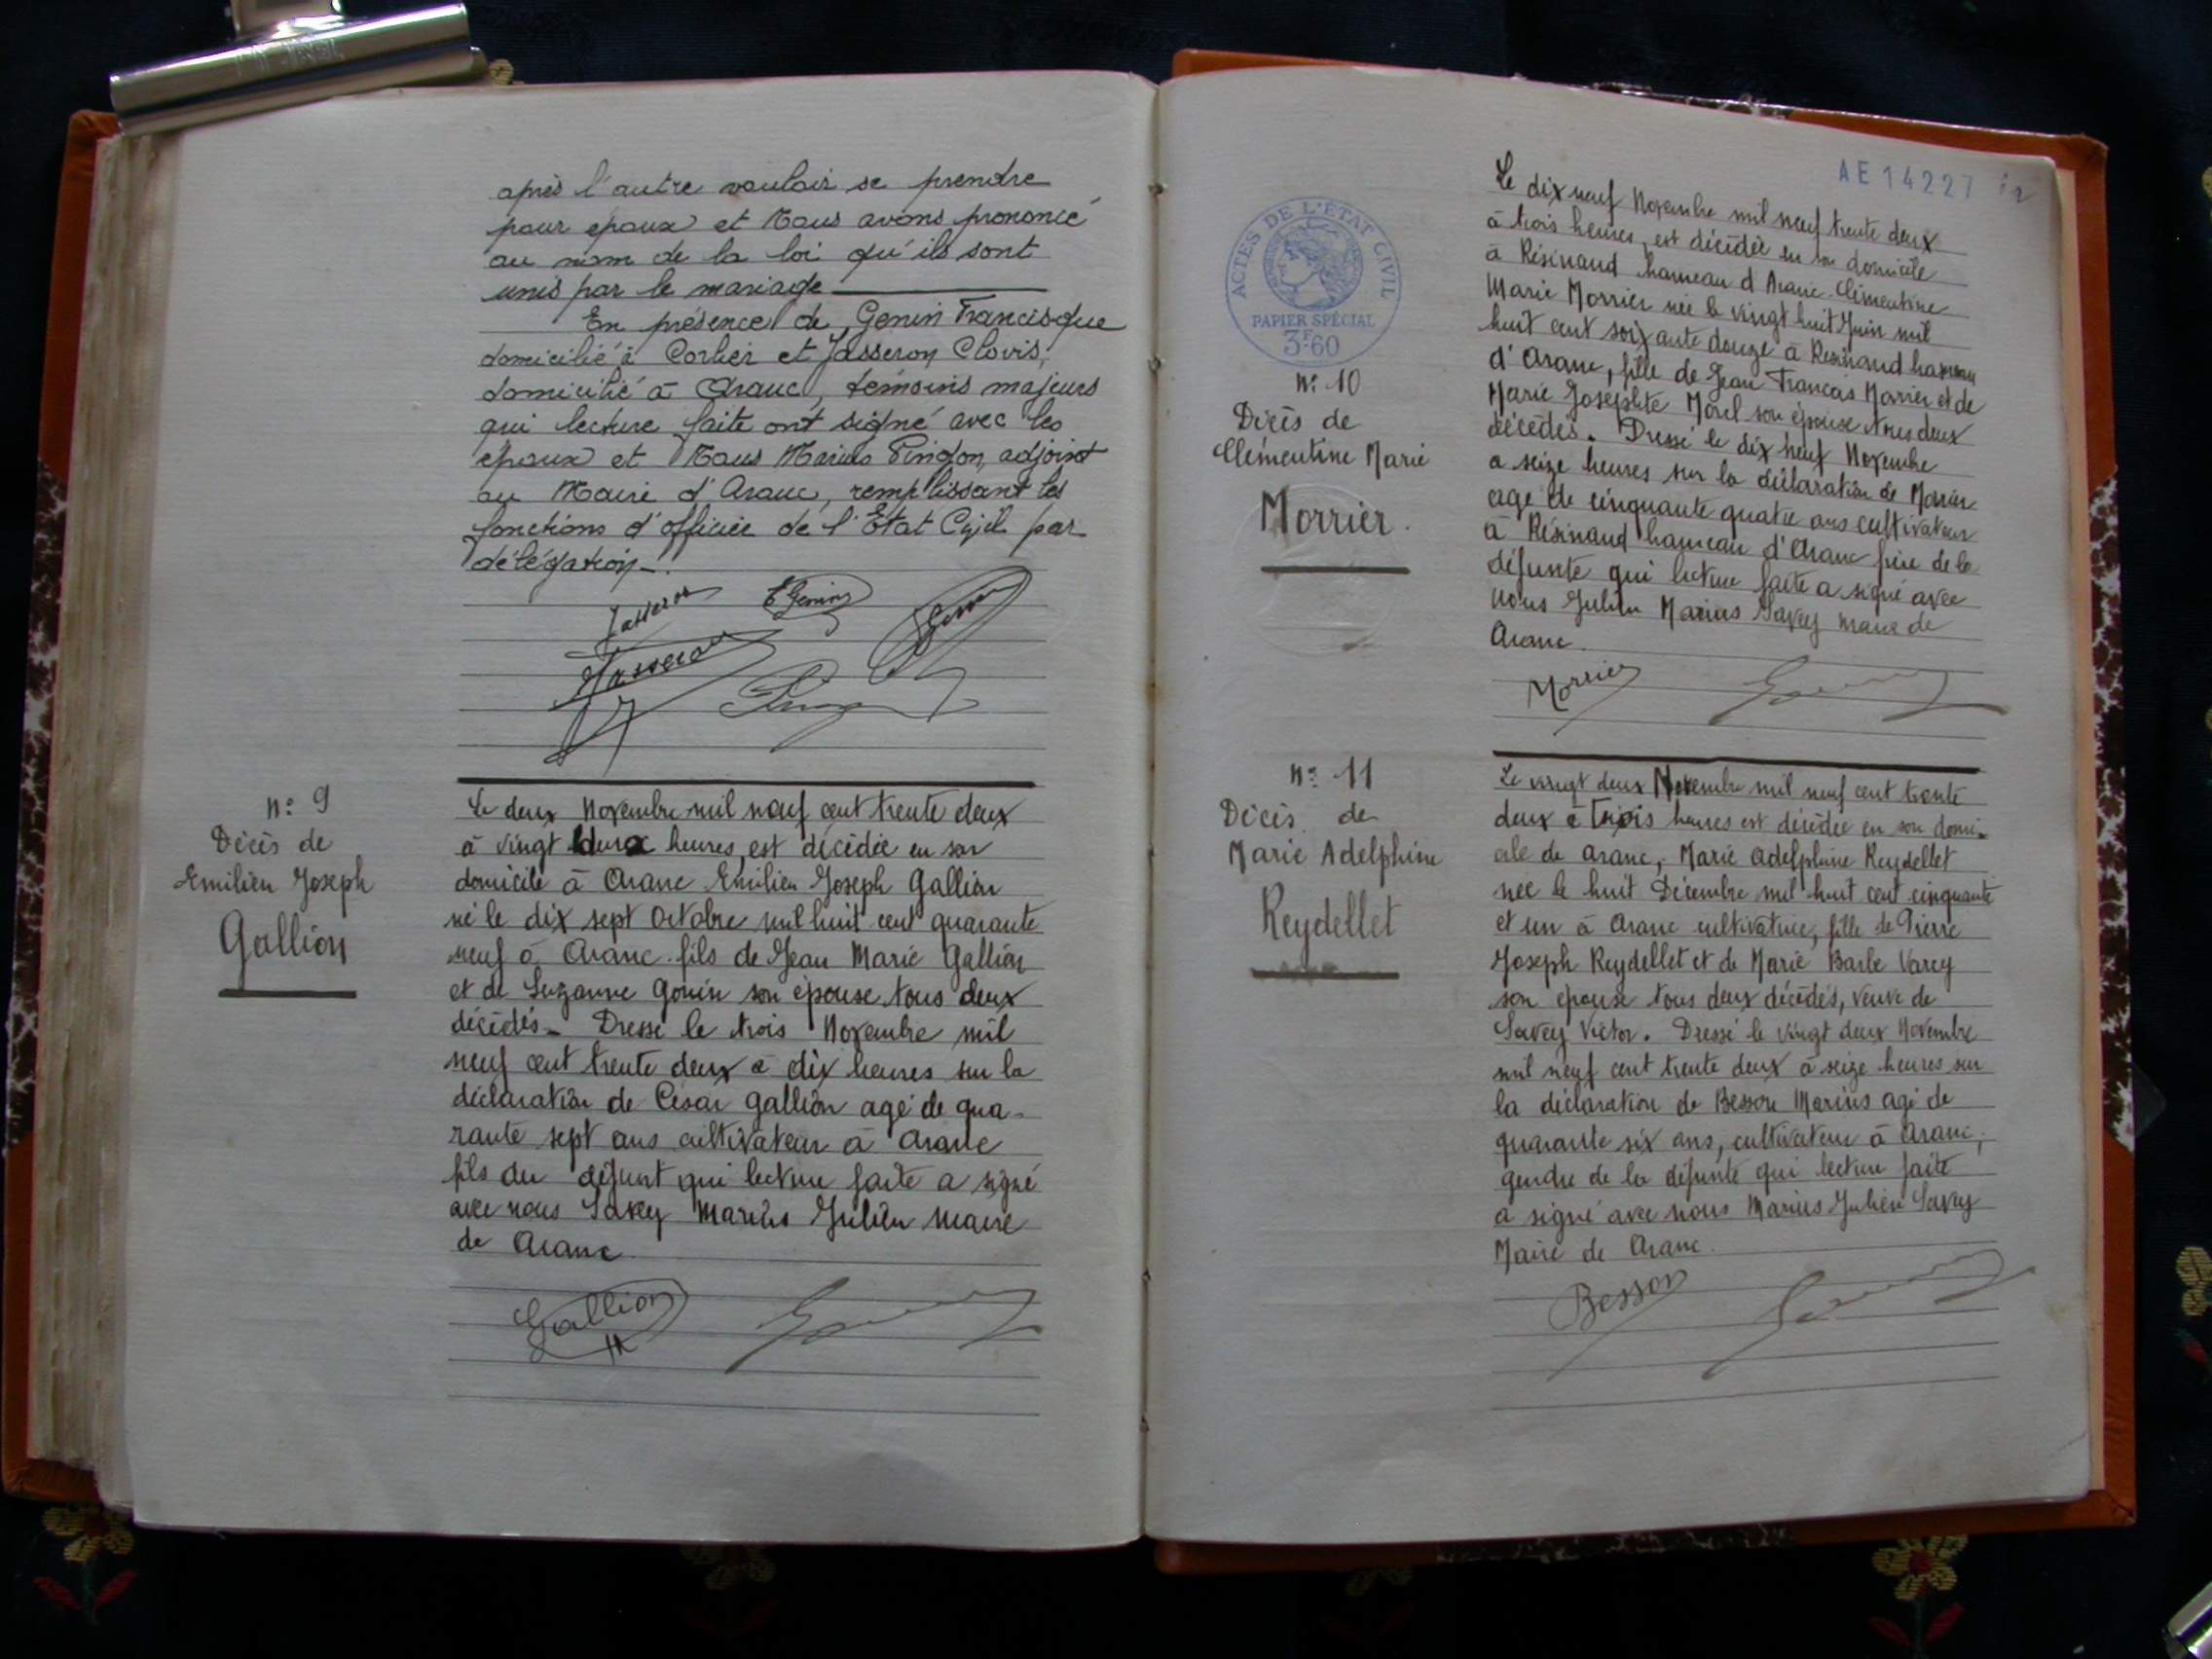 après l'autre vouloir se prendre
pour epoux et Nous avons prononcé
au nom de la loi qu'ils sont
unis par le mariage
En présence de Genin Francisque
domicilié à Corlier et Jasseron Clovis,
domicilié à Aranc, témoins majeurs
qui lecture faite ont signé avec les
epoux et Nous Marius Pingon, adjoint
au Maire d'Aranc, remplissant les
fonctions d'officier de l'Etat Civil par
délégation.
Jasseron
EGenin
Genin
Jasseron
N° 9
Décès de
Emilien Joseph
Gallion
Le deux Novembre mil neuf cent trente deux
à vingt deux heures, est décédée en son
domicile à Aranc Emilien Joseph Gallion
né le dix sept Octobre mil huit cent quarante
neuf à Aranc. fils de Jean Marie Gallion
et de Suzanne Gonin son épouse tous deux
décédés. Dressé le trois Novembre mil
neuf cent trente deux à dix heures sur la
déclaration de César Gallion agé de qua-
rante sept ans cultivateur à Aranc
fils du défunt qui lecture faite a signé
avec nous Savey Marius Julien Maire
de Aranc
Gallion
AE 14227
ACTES DE L'ÉTAT CIVIL
PAPIER SPÉCIAL
3F60
N° 10
Décès de
Clémentine Marie
Morrier.
Le dix neuf Novembre mil neuf trente deux
à trois heures, est décédée en son domicile
à Résinand hameau d Aranc Clémentine
Marie Morrier née le vingt huit Juin mil
huit cent soixante douze à Résinand hameau
d'Aranc, fille de Jean François Morrier et de
Marie Josephte Morel son épouse tous deux
décédés. Dressé le dix neuf Novembre
a seize heures sur la déclaration de Morrier
agé de cinquante quatre ans cultivateur
à Résinand hameau d'Aranc frère de la
défunte qui lecture faite a signé avec
nous Julien Marius Savey maire de
Aranc.
Morrier
N° 11
Décès de
Marie Adelphine
Reydellet
Le vingt deux Novembre mil neuf cent trente
deux à Trois heures est décédée en son domi-
cile de Aranc, Marie Adelphine Reydellet
née le huit Décembre mil huit cent cinquante
et un à Aranc cultivatrice, fille de Pierre
Joseph Reydellet et de Marie Barbe Varey
son épouse tous deux décédés, veuve de
Savey Victor. Dressé le vingt deux Novembre
mil neuf cent trente deux à seize heures sur
la déclaration de Besson Marius agé de
quarante six ans, cultivateur à Aranc,
gendre de la défunte qui lecture faite
a signé avec nous Marius Julien Savey
Maire de Aranc.
Besson